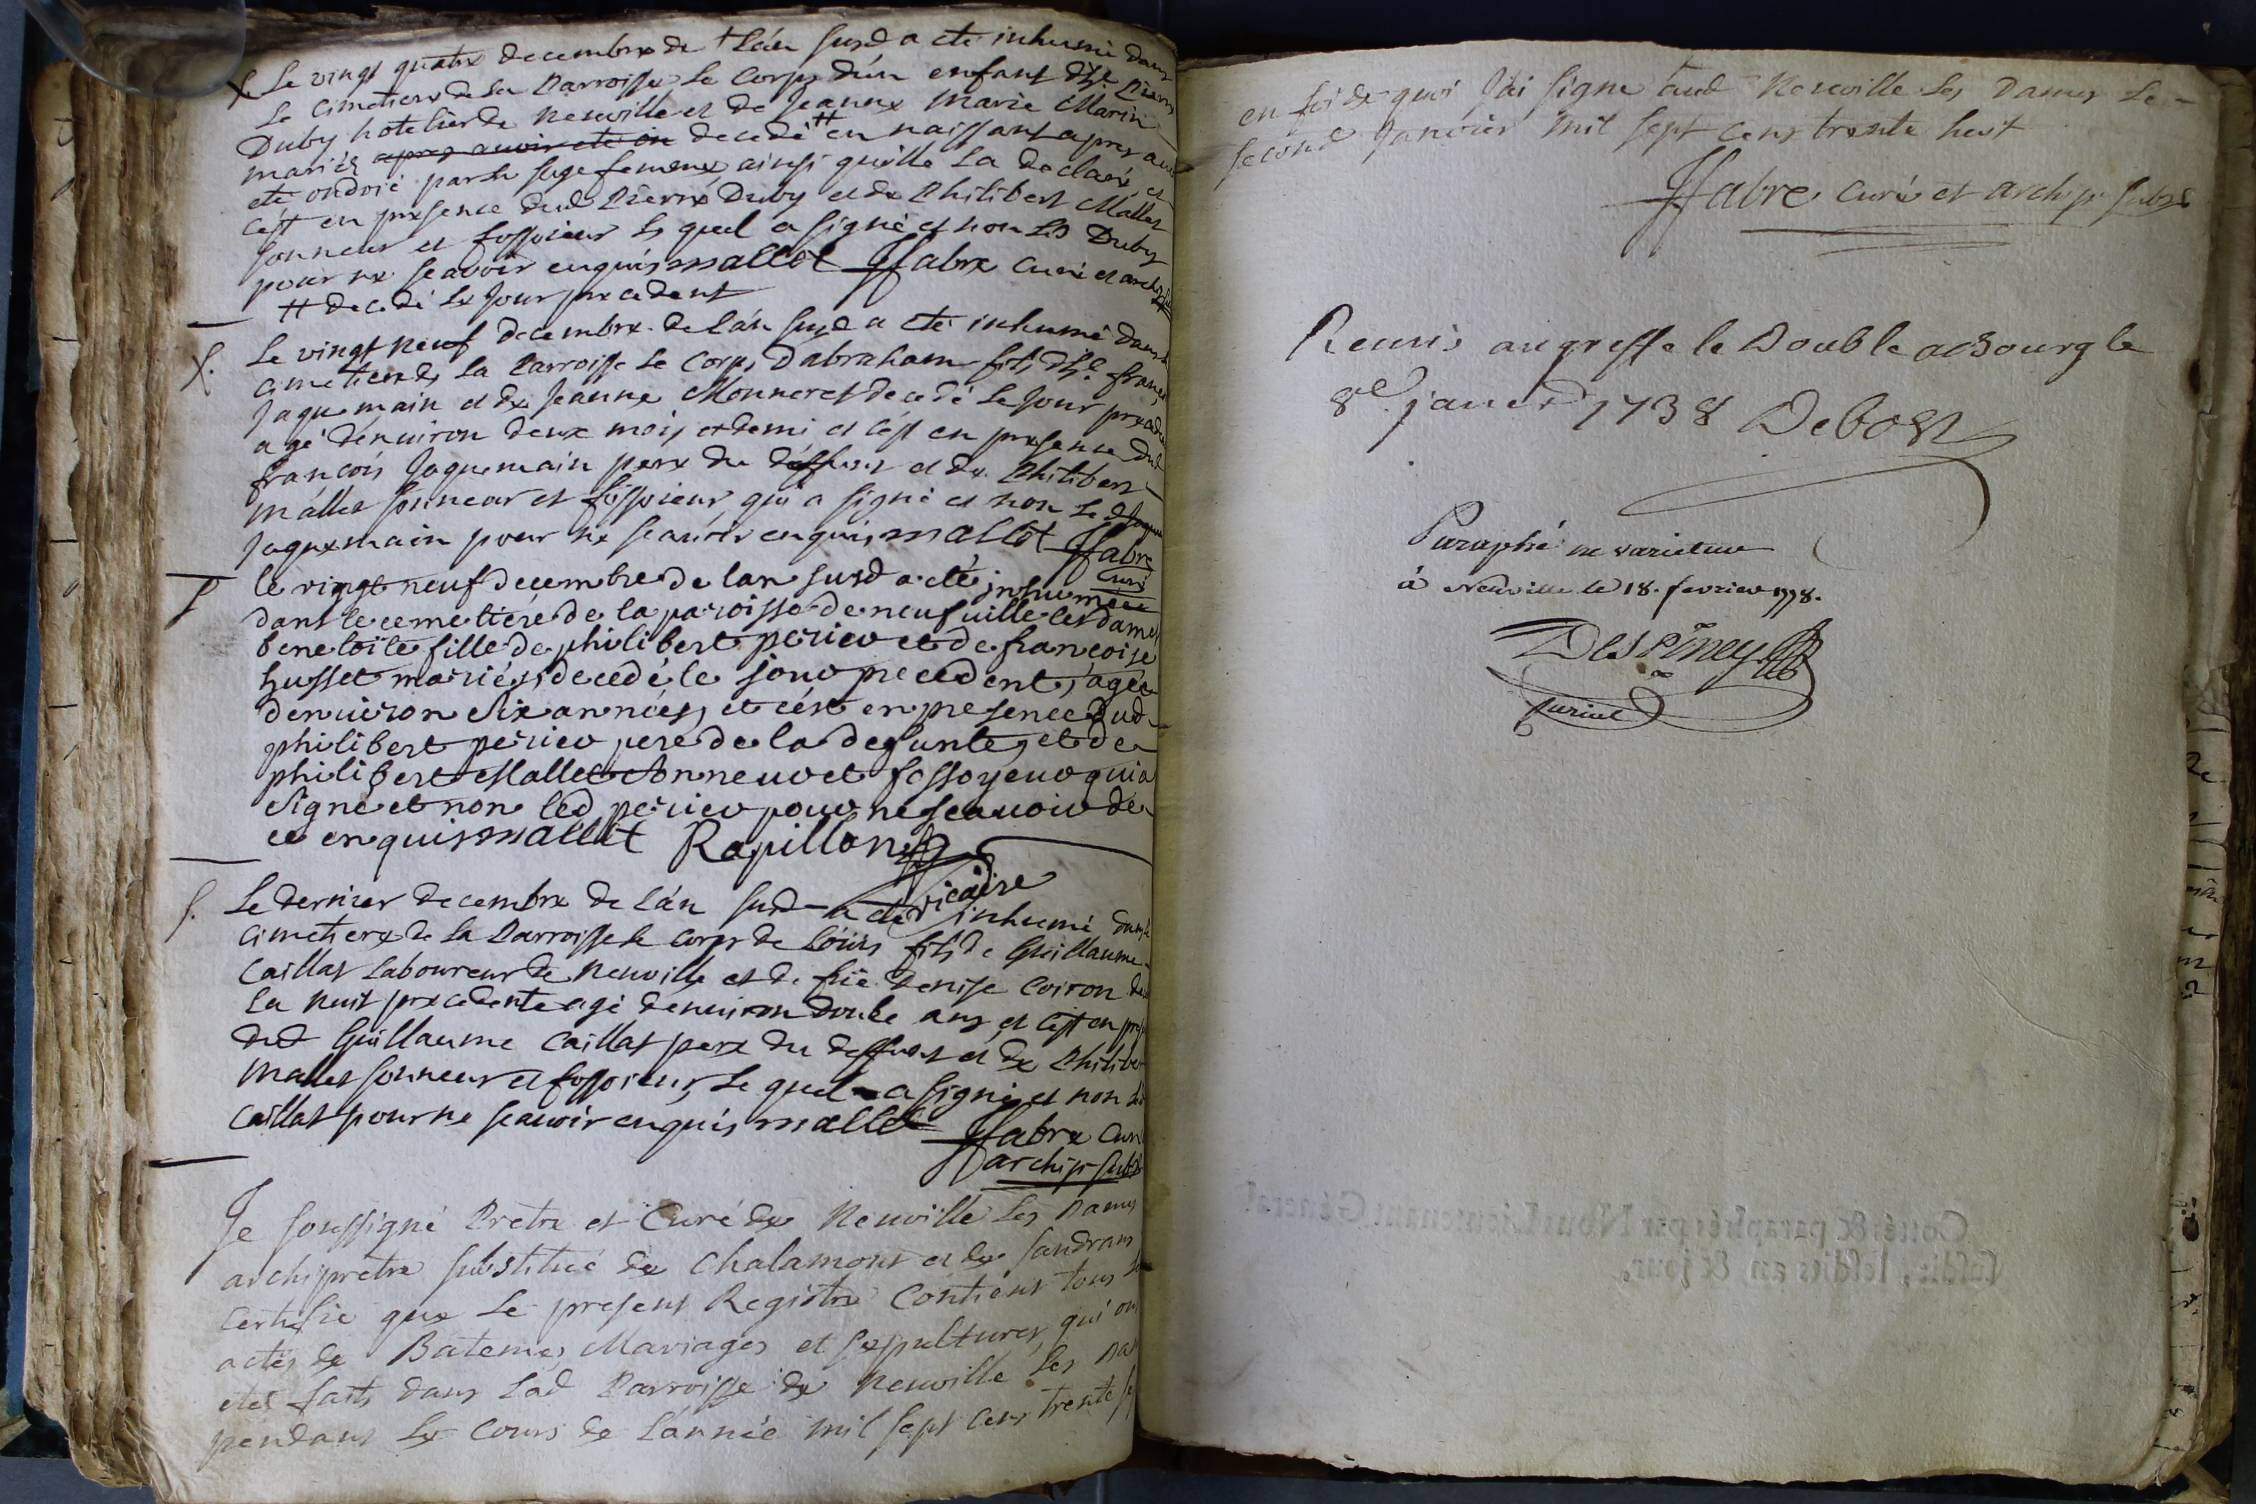 S. Le vingt quatre decembre de l'an susd a eté inhumé dans
le cimetiere de la Parroisse le corps d'un enfant d'h.e Pierre
Duby hotelier de Neuville et de Jeanne Marie Marin
mariés apres avoir ete on decedé # en naissant apres avoir
eté ondoié par la sage femme, ainsi qu'elle la declaré, et
c'est en presence dud Pierre Duby et de Philibert Mallet
sonneur et fossoieur le quel a signé et non led Duby
pour ne scavoir enquis mallet JFabre curé et arch
# decedé le jour precedent
S. Le vingt neuf decembre de l'an susd a eté inhumé dans le
cimetiere de la Parroisse le corps d'abraham fils d'h.e francois
Jaquemain et de Jeanne Monneret decedé le jour precedent
agé d'environ deux mois et demi et c'est en presence dud
francois Jaquemain pere du deffunt et de Philibert
mallet sonneur et fossoieur qui a signé et non led
Jaquemain pour ne scavoir enquis mallet JFabre
curé
S le vingt neuf decembre de lan susd a eté inhumée
dans le cemetiere de la paroisse de neufuille les dames
benetoite fille de philibert perier et de francoise
husset mariés, decedé le jour precedent, agée
d'environ six années, et c'est en presence dud
philibert perier pere de la defunte, et de
philibert Mallet sonneur et fossoyeur qui a
signé et non led perier pour ne scavoir de
ce enquis mallet Rapillon
Vicaire
S. Le dernier decembre de l'an susd a eté inhumé dans le
cimetiere de la Parroisse le corps de Loüis fils de Guillaume
Caillat laboureur de Neuville et de Denise Coiron
la nuit precedente agé d'environ douze ans et c'est en
dud Guillaume Caillat pere du deffunt et de Philibert
Mallet sonneur et fossoieur, le quel a signé et non led
Caillat pour ne scavoir enquis mallet JFabre curé
archip. subs
Je soussigné Pretre et Curé de Neuville Les Dames
archipretre substitué de Chalamont et de Sandrans
certifie que le present Registre contient tous les
actes de Batemes Mariages et sepultures, qui ont
etés faits dans lad Parroisse de Neuville les Dames
pendant le cours de l'année mil sept cens trente sept
en foi de quoi J'ai signé aud Neuville les Dames le
second Janvier mil sept cens trente huit
JFabre curé et archip. subs
Remis au greffe le Double a Bourg le
8e janer 1738 Debost
Paraphé ne varietur
à Neuville le 18. fevrier 1778.
Cotté & paraphé par Nous Lieutenant Général
susdit, lesdits an & jour.